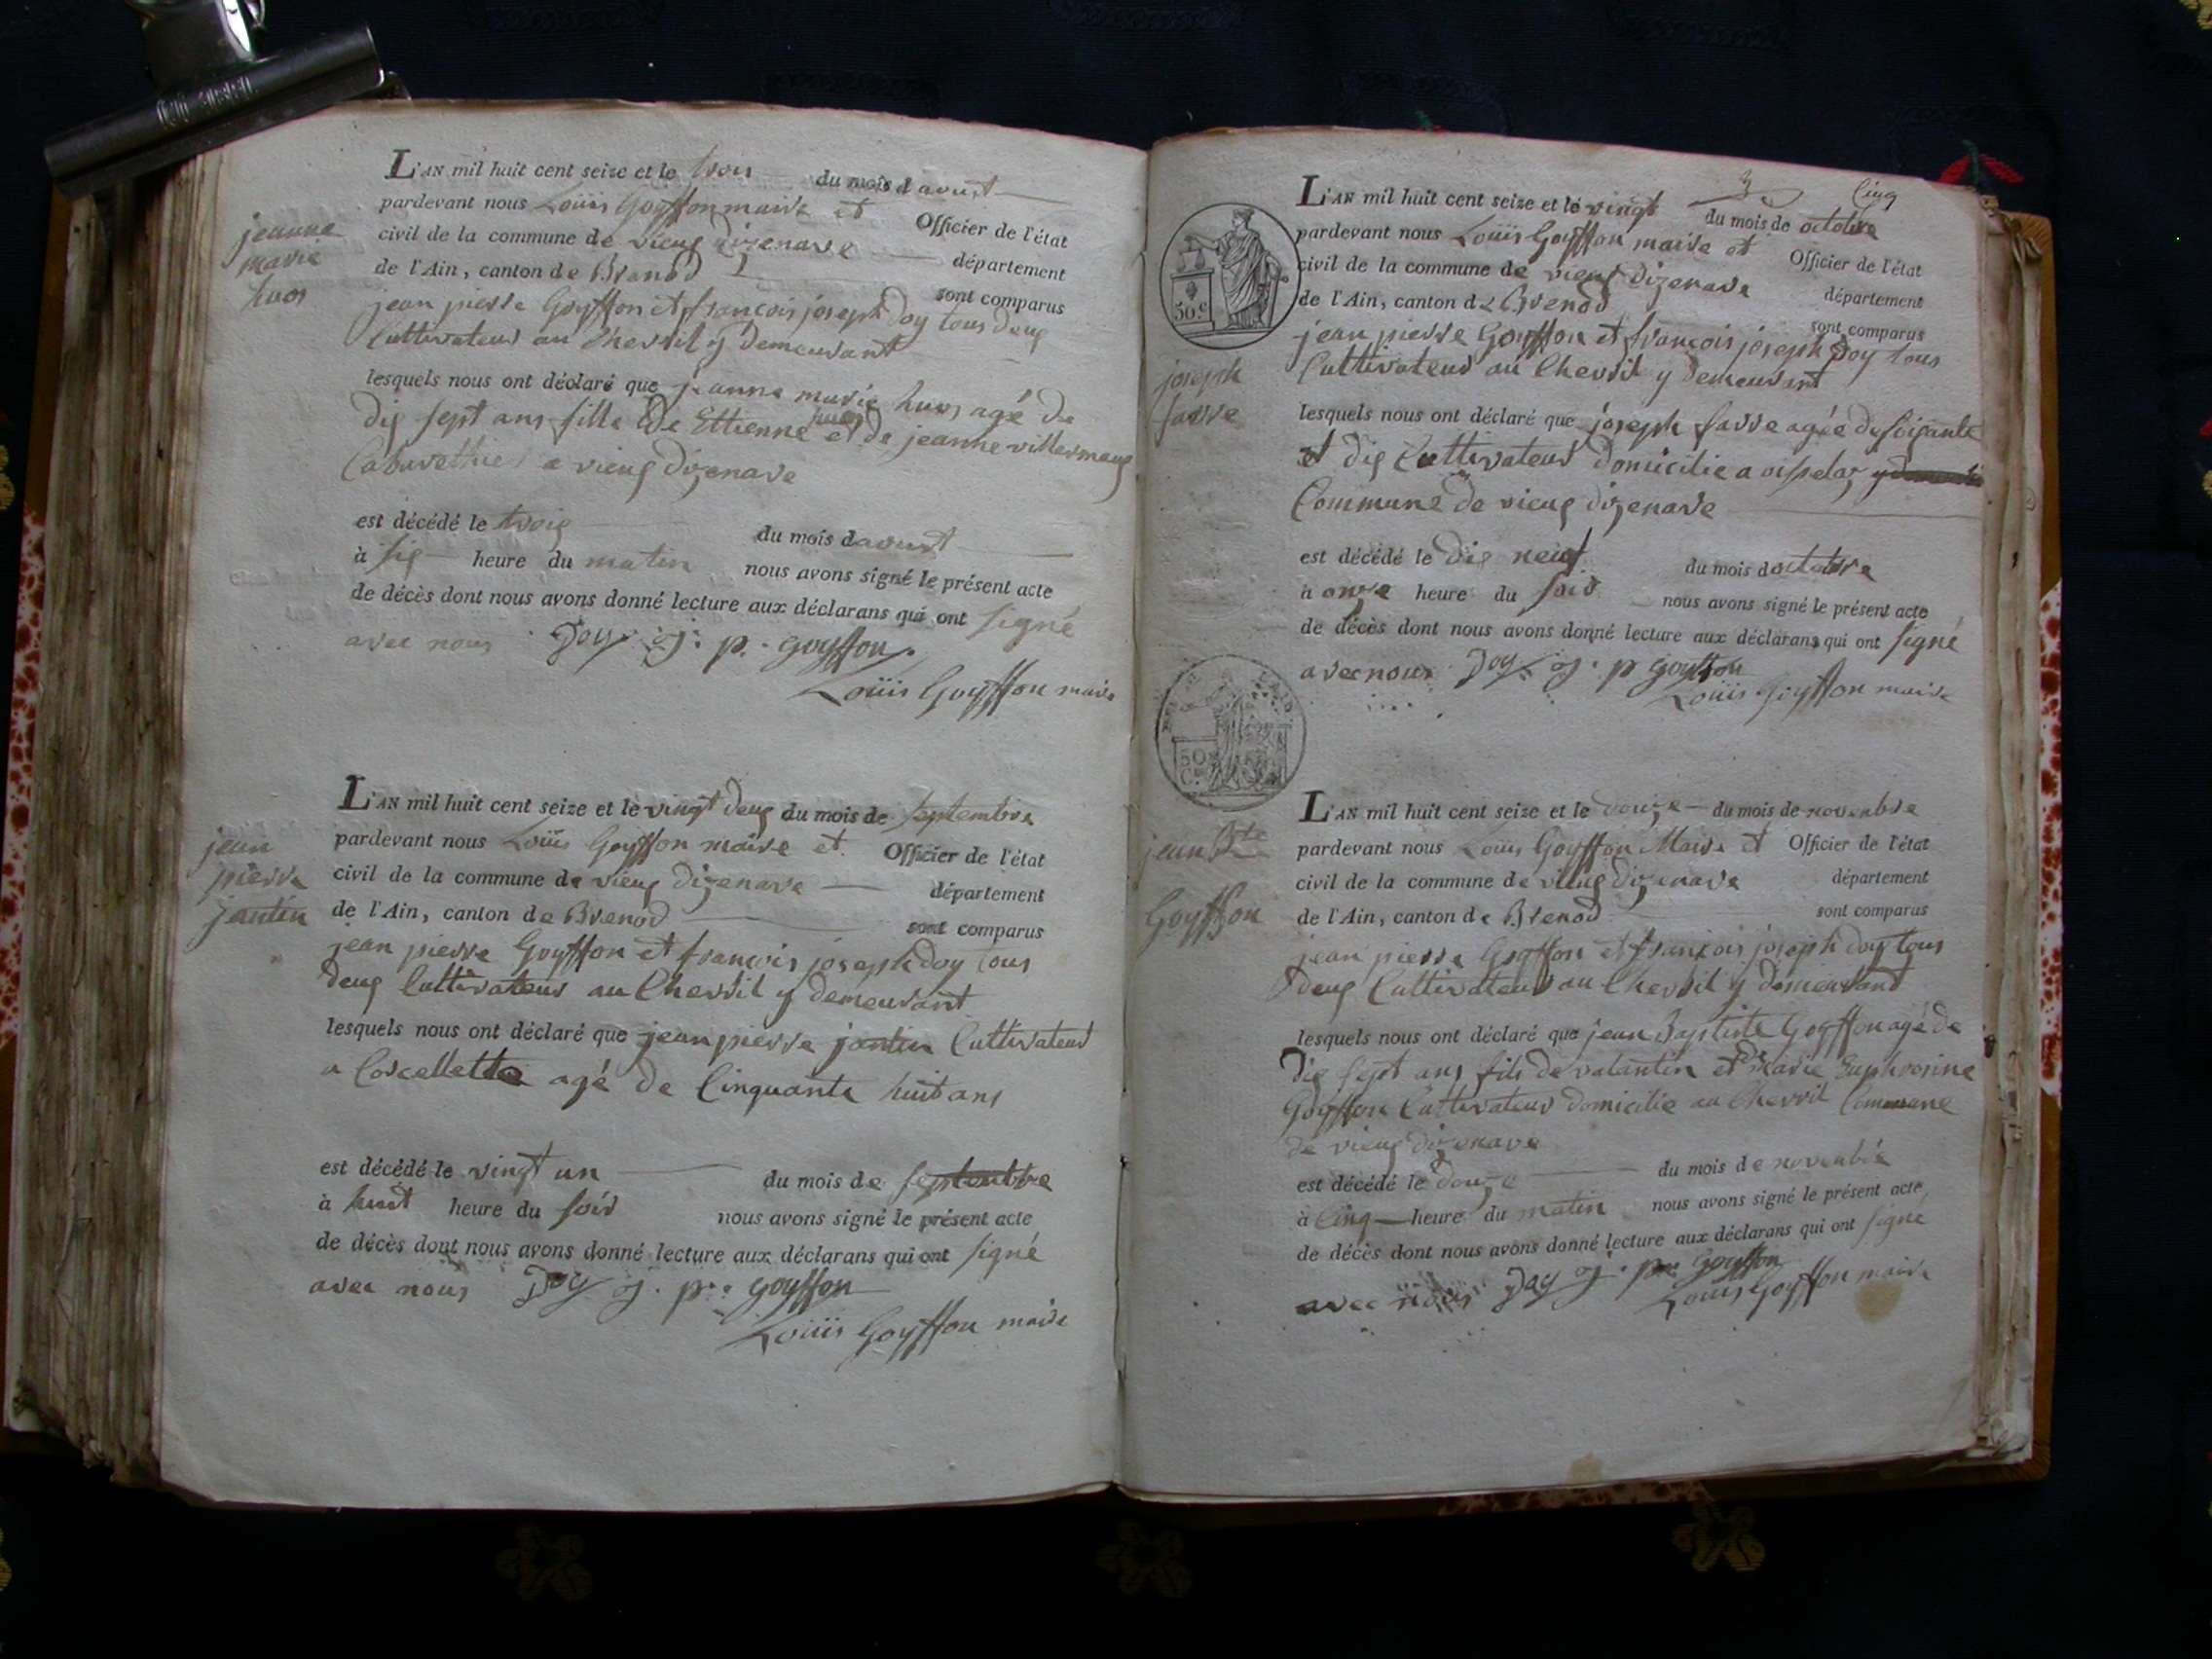 jeanne
marie
huos
L'AN mil huit cent seize et le trois du mois d avust
pardevant nous Loüis Goyffon maire et Officier de l'état
civil de la commune de vieug dizenave département
de l'Ain, canton de Brenod sont comparus
jean pierre Goyffon et françois joseph Doy tous deug
Cultivateur au Chevril y demeurant
lesquels nous ont déclaré que jeanne marie huos agé de
dig sept ans fille de Ettienne huos et de jeanne villermaug
Cabarethier a vieug dizenave
est décédé le trois du mois d avust
à sig heure du matin nous avons signé le présent acte
de décès dont nous avons donné lecture aux déclarans qui ont signé
avec nous Doy j. p. goyffon
Loüis Goyffon maire
jean
pierre
jantin
L'AN mil huit cent seize et le vingt deug du mois de septembre
pardevant nous Loüis Goyffon maire et Officier de l'état
civil de la commune de vieug dizenave département
de l'Ain, canton de Brenod sont comparus
jean pierre Goyffon et françois joseph doy tous
deug Cultivateur au Chevril y demeurant
lesquels nous ont déclaré que jean pierre jantin Cultivateur
a Corcellette agé de Cinquante huit ans
est décédé le vingt un du mois de septembre
à huit heure du soir nous avons signé le présent acte
de décès dont nous avons donné lecture aux déclarans qui ont signé
avec nous Doy j. p. goyffon
Loüis Goyffon maire
3 Cinq
50.c
joseph
favre
L'AN mil huit cent seize et le vingt du mois de octobre
pardevant nous Loüis Goyffon maire et Officier de l'état
civil de la commune de vieug Dizenave département
de l'Ain, canton de Brenod sont comparus
jean pierre Goyffon et françois joseph Doy tous
Cultivateur au Chevril y demeurant
lesquels nous ont déclaré que joseph favre agée de soigante
et dig Cultivateur domicilie a oisselaz
Commune de vieug dizenave
est décédé le dig neuf du mois d octobre
à onze heure du soir nous avons signé le présent acte
de décès dont nous avons donné lecture aux déclarans qui ont signé
avec nous Doy j. p goyffon
Loüis Goyffon maire
50
C.
jean Bte
Goyffon
L'AN mil huit cent seize et le douze du mois de novembre
pardevant nous Loüis Goyffon Maire et Officier de l'état
civil de la commune de vieug dizenave département
de l'Ain, canton de Brenod sont comparus
jean pierre Goyffon et françois joseph doy tous
deug Cultivateur au Chevril y demeurant
lesquels nous ont déclaré que jean Baptiste Goyffon agé de
dig sept ans fils de valantin et de marie Euphrosine
Goyffon Cultivateur domicilie au Chevril Commune
de vieug dizenave
est décédé le douze du mois de novembre
à Cinq heure du matin nous avons signé le présent acte
de décès dont nous avons donné lecture aux déclarans qui ont signé
avec nous Doy j. p. goyffon
Loüis Goyffon maire